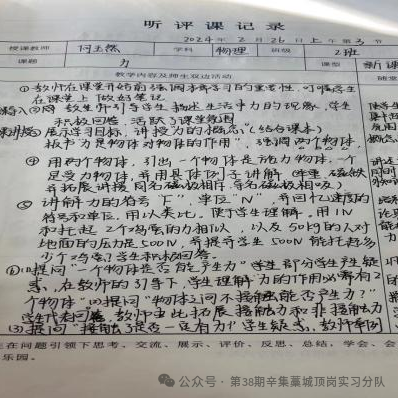 听评课记录
2024年2月26日上午第3节
授课教师 何 然 学科 物理 班级 2班
课题 力 课型 新课
教学内容及师生双边活动 随堂
①教师在课堂开始前强调本学习的重要性,叮嘱学生
在课堂上做好笔记
②教师引导学生 生活中力的现象,学生
积极回答,活跃了课堂氛围
展示学习目标,讲授力的概念(结合课本)
"力是物体对物体的作用",强调两个物体,
④用两个物体,引出一个物体是施力物体,一个
是受力物体,并用具体例子讲解
并拓展讲授同名磁极相斥,异名磁极相吸)
⑤讲解力的符号"F",单位"N",并回忆速度的
符号和单位,用以类比,便于学生理解。用1N
和托起2个鸡蛋的力相似,以及50kg的人对
地面的压力是500N,并提学生500N能托起多
少个鸡蛋?学生积极回答。
⑥(1)提问"一个物体是否能产生力"学生部分学生产生疑
惑,在教师的引导下,学生理解力的作用必需有2
个物体"(2)提问"物体之间不接触能否产生力?"
学生代表回答,教师由此拓展接触力和非接触力
(3)提问"接触了是否一定有力"学生疑惑,教师举例
在问题引领下思考、交流、展示、评价、反思、总结,学会、会
乐园。
公众号·第38期辛集藁城顶岗实习分队